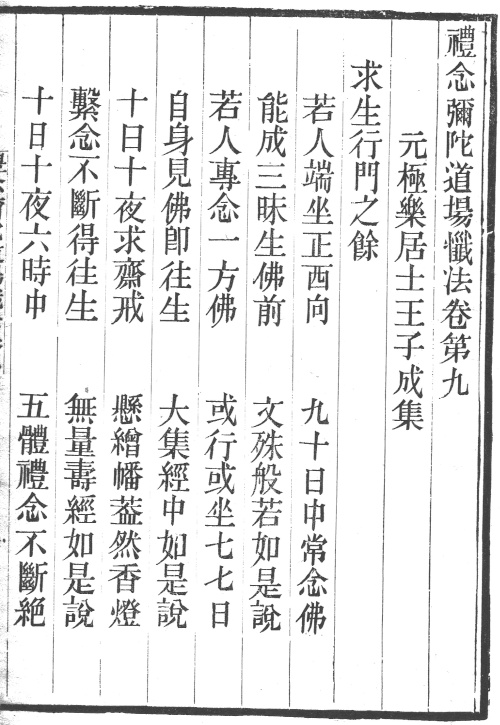 禮念彌陀道場懺法卷第九
元極樂居士王子成集
求生行門之餘
若人端坐正西向　九十日中常念佛
能成三昧生佛前　文殊般若如是說
若人專念一方佛　或行或坐七七日
自身見佛卽往生　大集經中如是說
十日十夜求齋戒　懸繒幡葢然香燈
繫念不斷得往生　無量壽經如是說
十日十夜六時中　五體禮念不斷絕